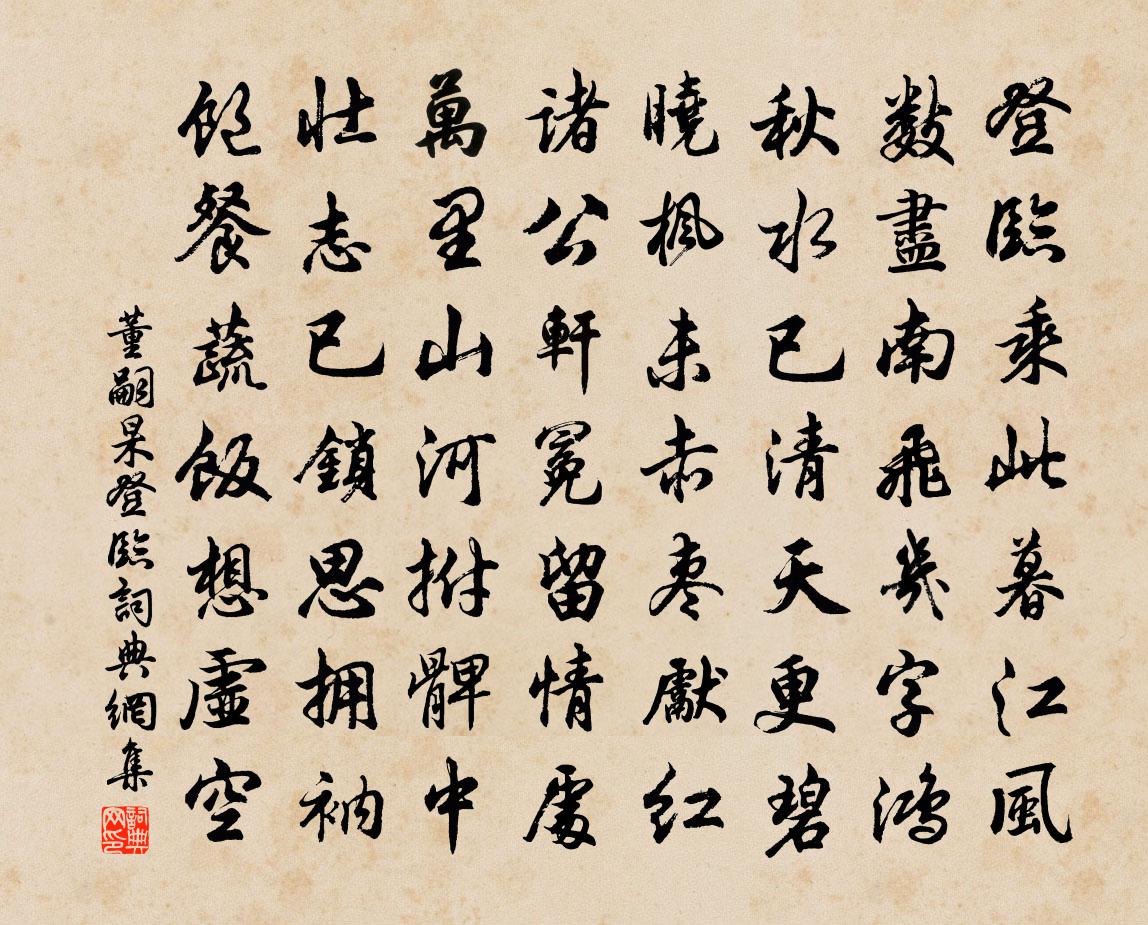 登臨乘此暮江風
數盡南飛幾字鴻
秋水已清天更碧
曉楓未赤棗獻紅
诸公軒冕留情處
萬里山河拊髀中
壯志已鎖思拥衲
飽餐蔬飯想虛空
董嗣杲登臨詞典網集
詞典网印